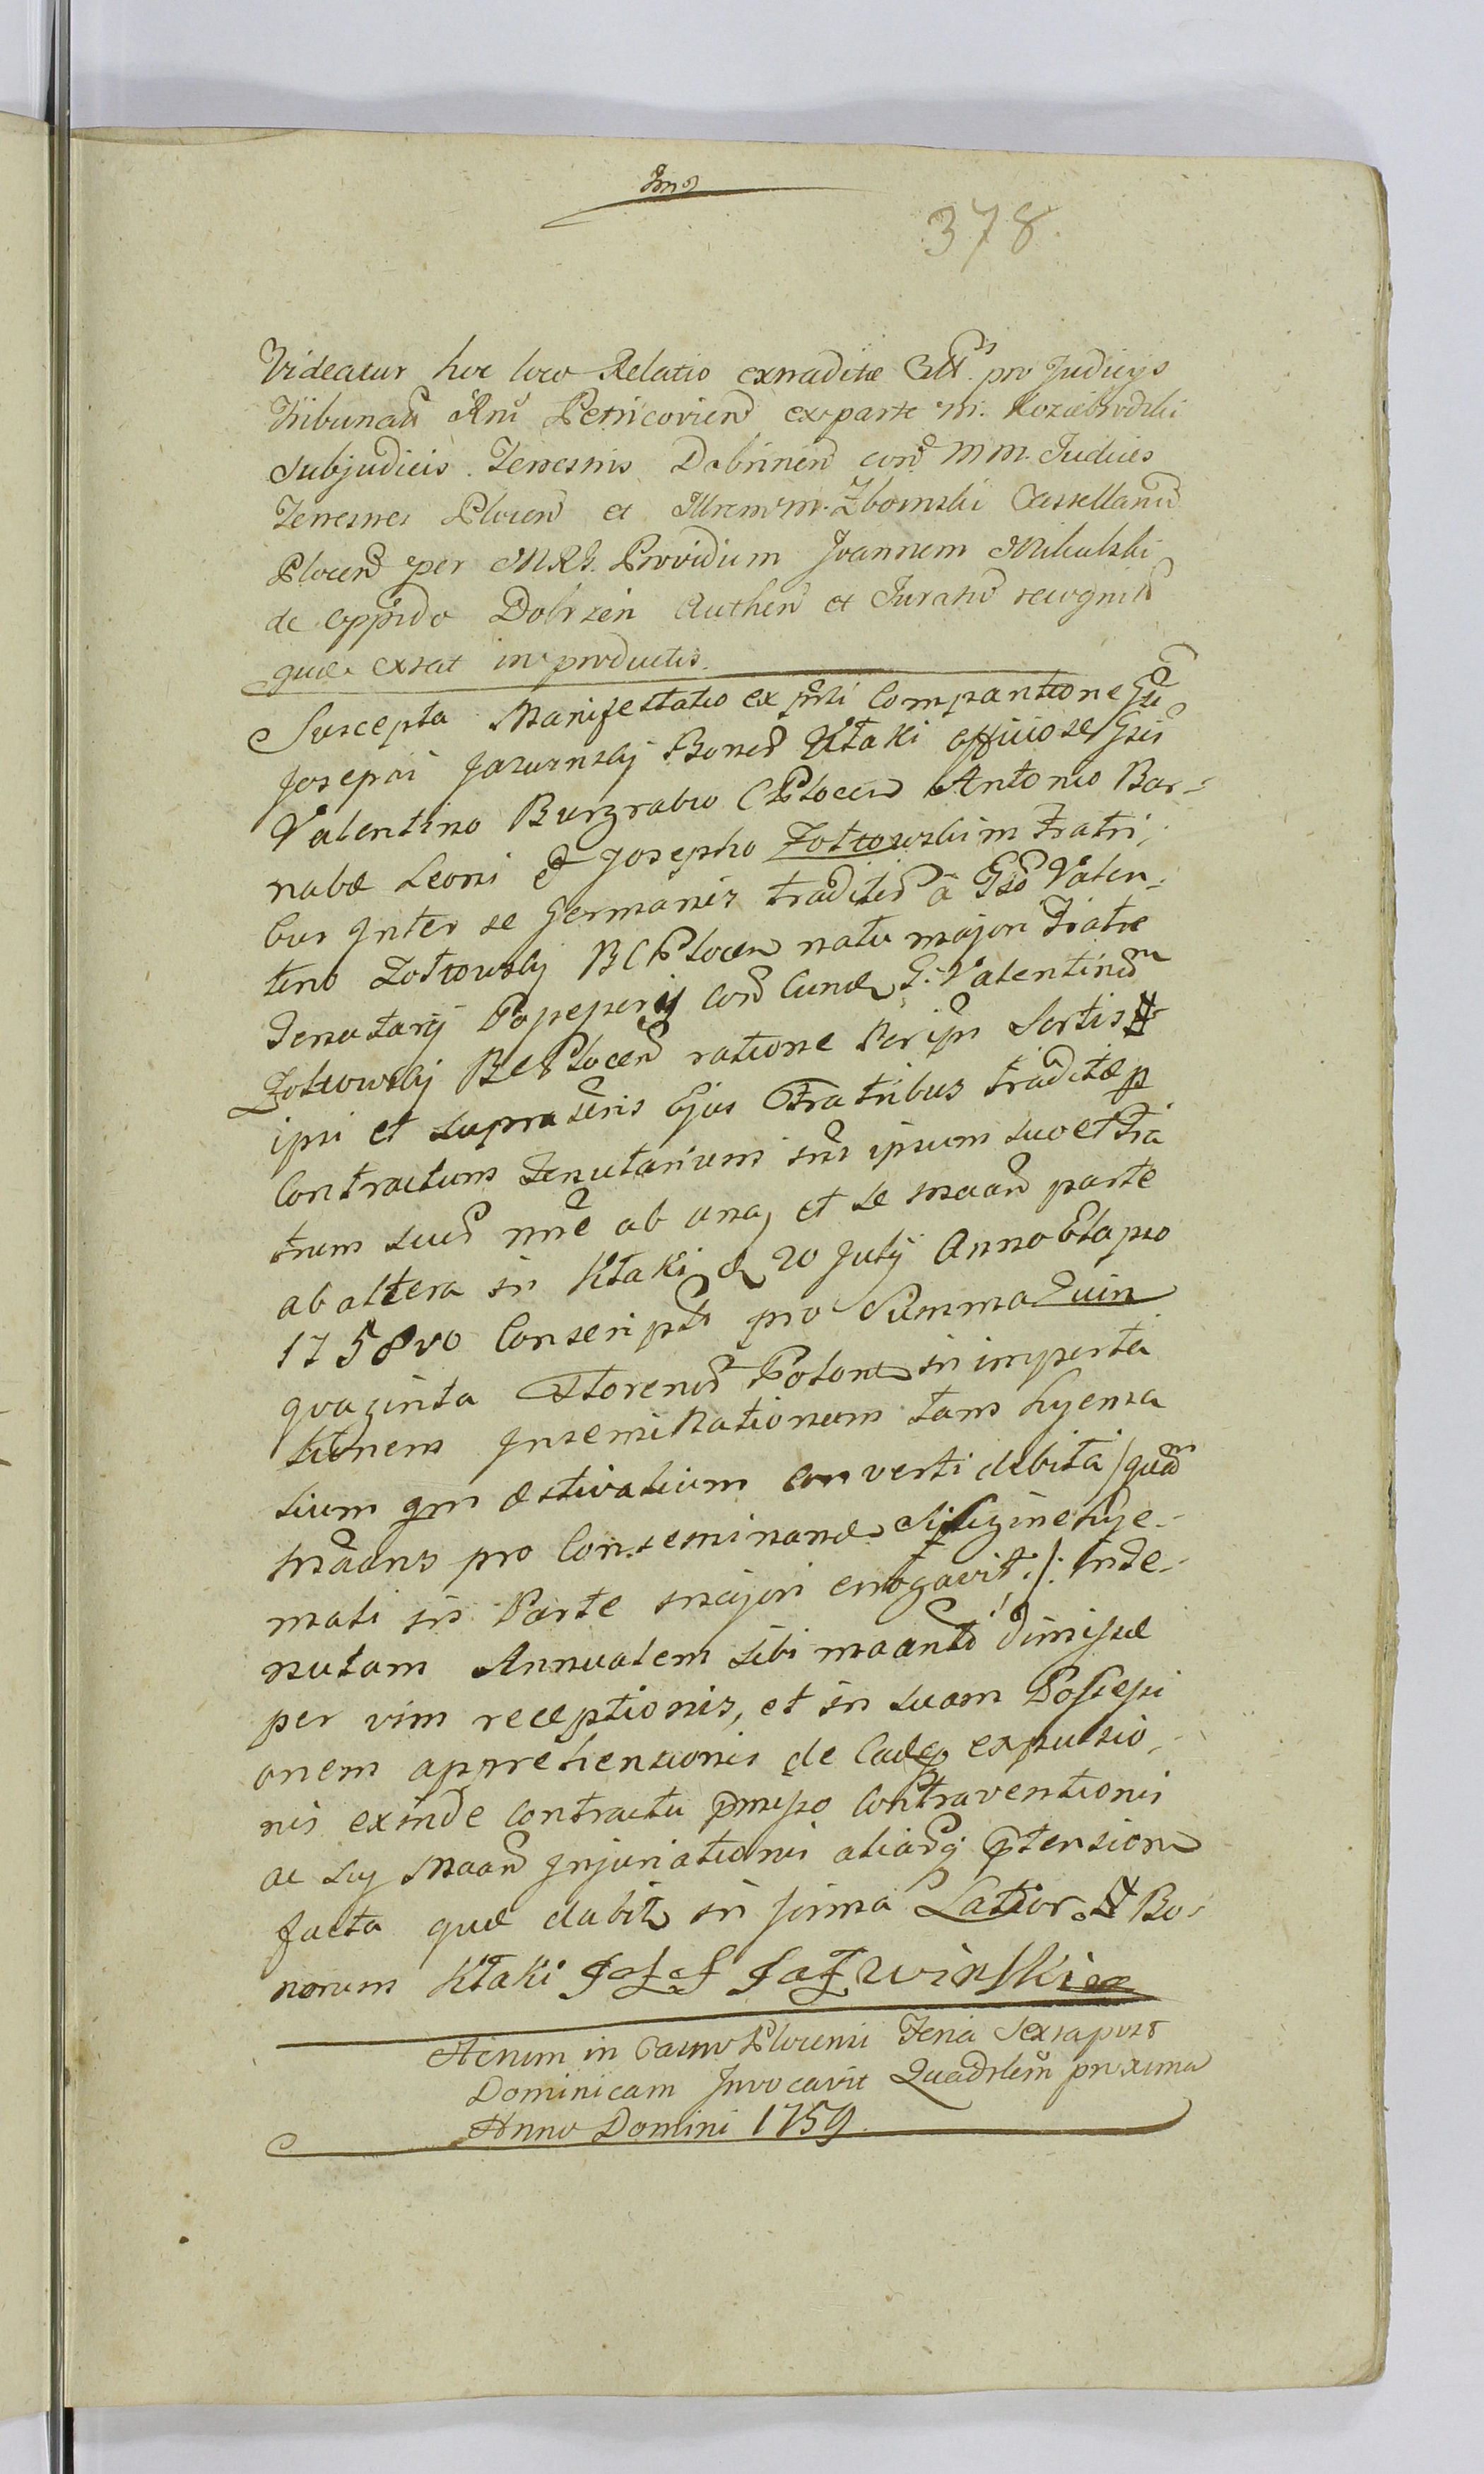 378.
Videatur hoc loco Relatio extraditæ pro Judicys
Petricovien ex parte M. Kozłebrodzki
Subjudicis Terrestris Dobrinen con MM. Judices
Terrestres Plocen et M. Zboinski Castellanu
Plocen per MRG. Providum Joannem Mikulski
de Oppido Dobrzen Authen et Juratu recognit
quæ extat in productis.
Suscepta Manifestatio ex comparitione
Josephi Bonor Kłaki officiose
Valentino Burgrabio C Plocen Antonio Bar-
nabæ Leoni et Josepho Żołtowskim Fratri,
bus Inter se Germanis traditer a Gso Valen-
tino Żołtowskj B C Plocen natu majori Fratre
Tenutarij con G. Valentinum
Żołtowskj B C Plocen ratione Sortis
ipsi et supra Ejus Fratribus traditæ p
Contractum Tenutarium inr ipsum suo et Fra
trum suor nne ab una, et se maan parte
ab altera in Kłaki d 20 Julij Anno Elapso
1758vo Conscripti pro Summa Quin
quaginta Florenor Polon in
tionem Inseminationum tam hyema
lium qm æstivalium converti debita / quam
maans pro Conseminanda Siligine hye-
mali in Parte majori errogavit ./. in Te-
nutam Annualem sibi maanti dimissæ
per vim receptionis, et in suam Possessi
onem apprehensionis de expulsio,
nis exinde contractui præmisso Contraventionis
ac sui Maan Injuriationis aliarq prtension
facta quæ dabit in forma Latior. Bo-
norum Kłaki Jozef Jaźwinski
Actum in Castro Plocensi Feria Sexta post
Dominicam Invocavit Quadrlem proxima
Anno Domini 1759.